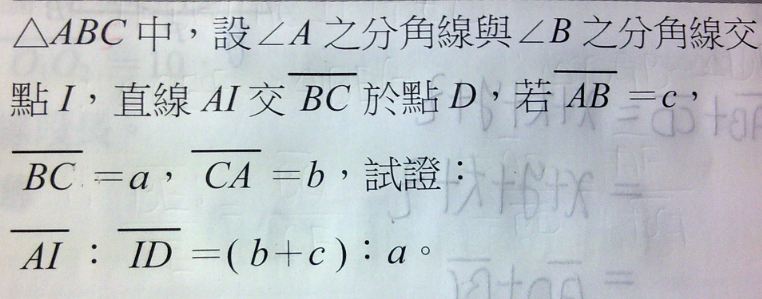 △ABC 中，設∠A 之分角線與∠B 之分角線交
點 I，直線 AI 交 \overline{BC} 於點 D，若 \overline{AB} =c，
\overline{BC} =a， \overline{CA} =b，試證：
\overline{AI} ： \overline{ID} =( b+c )：a。